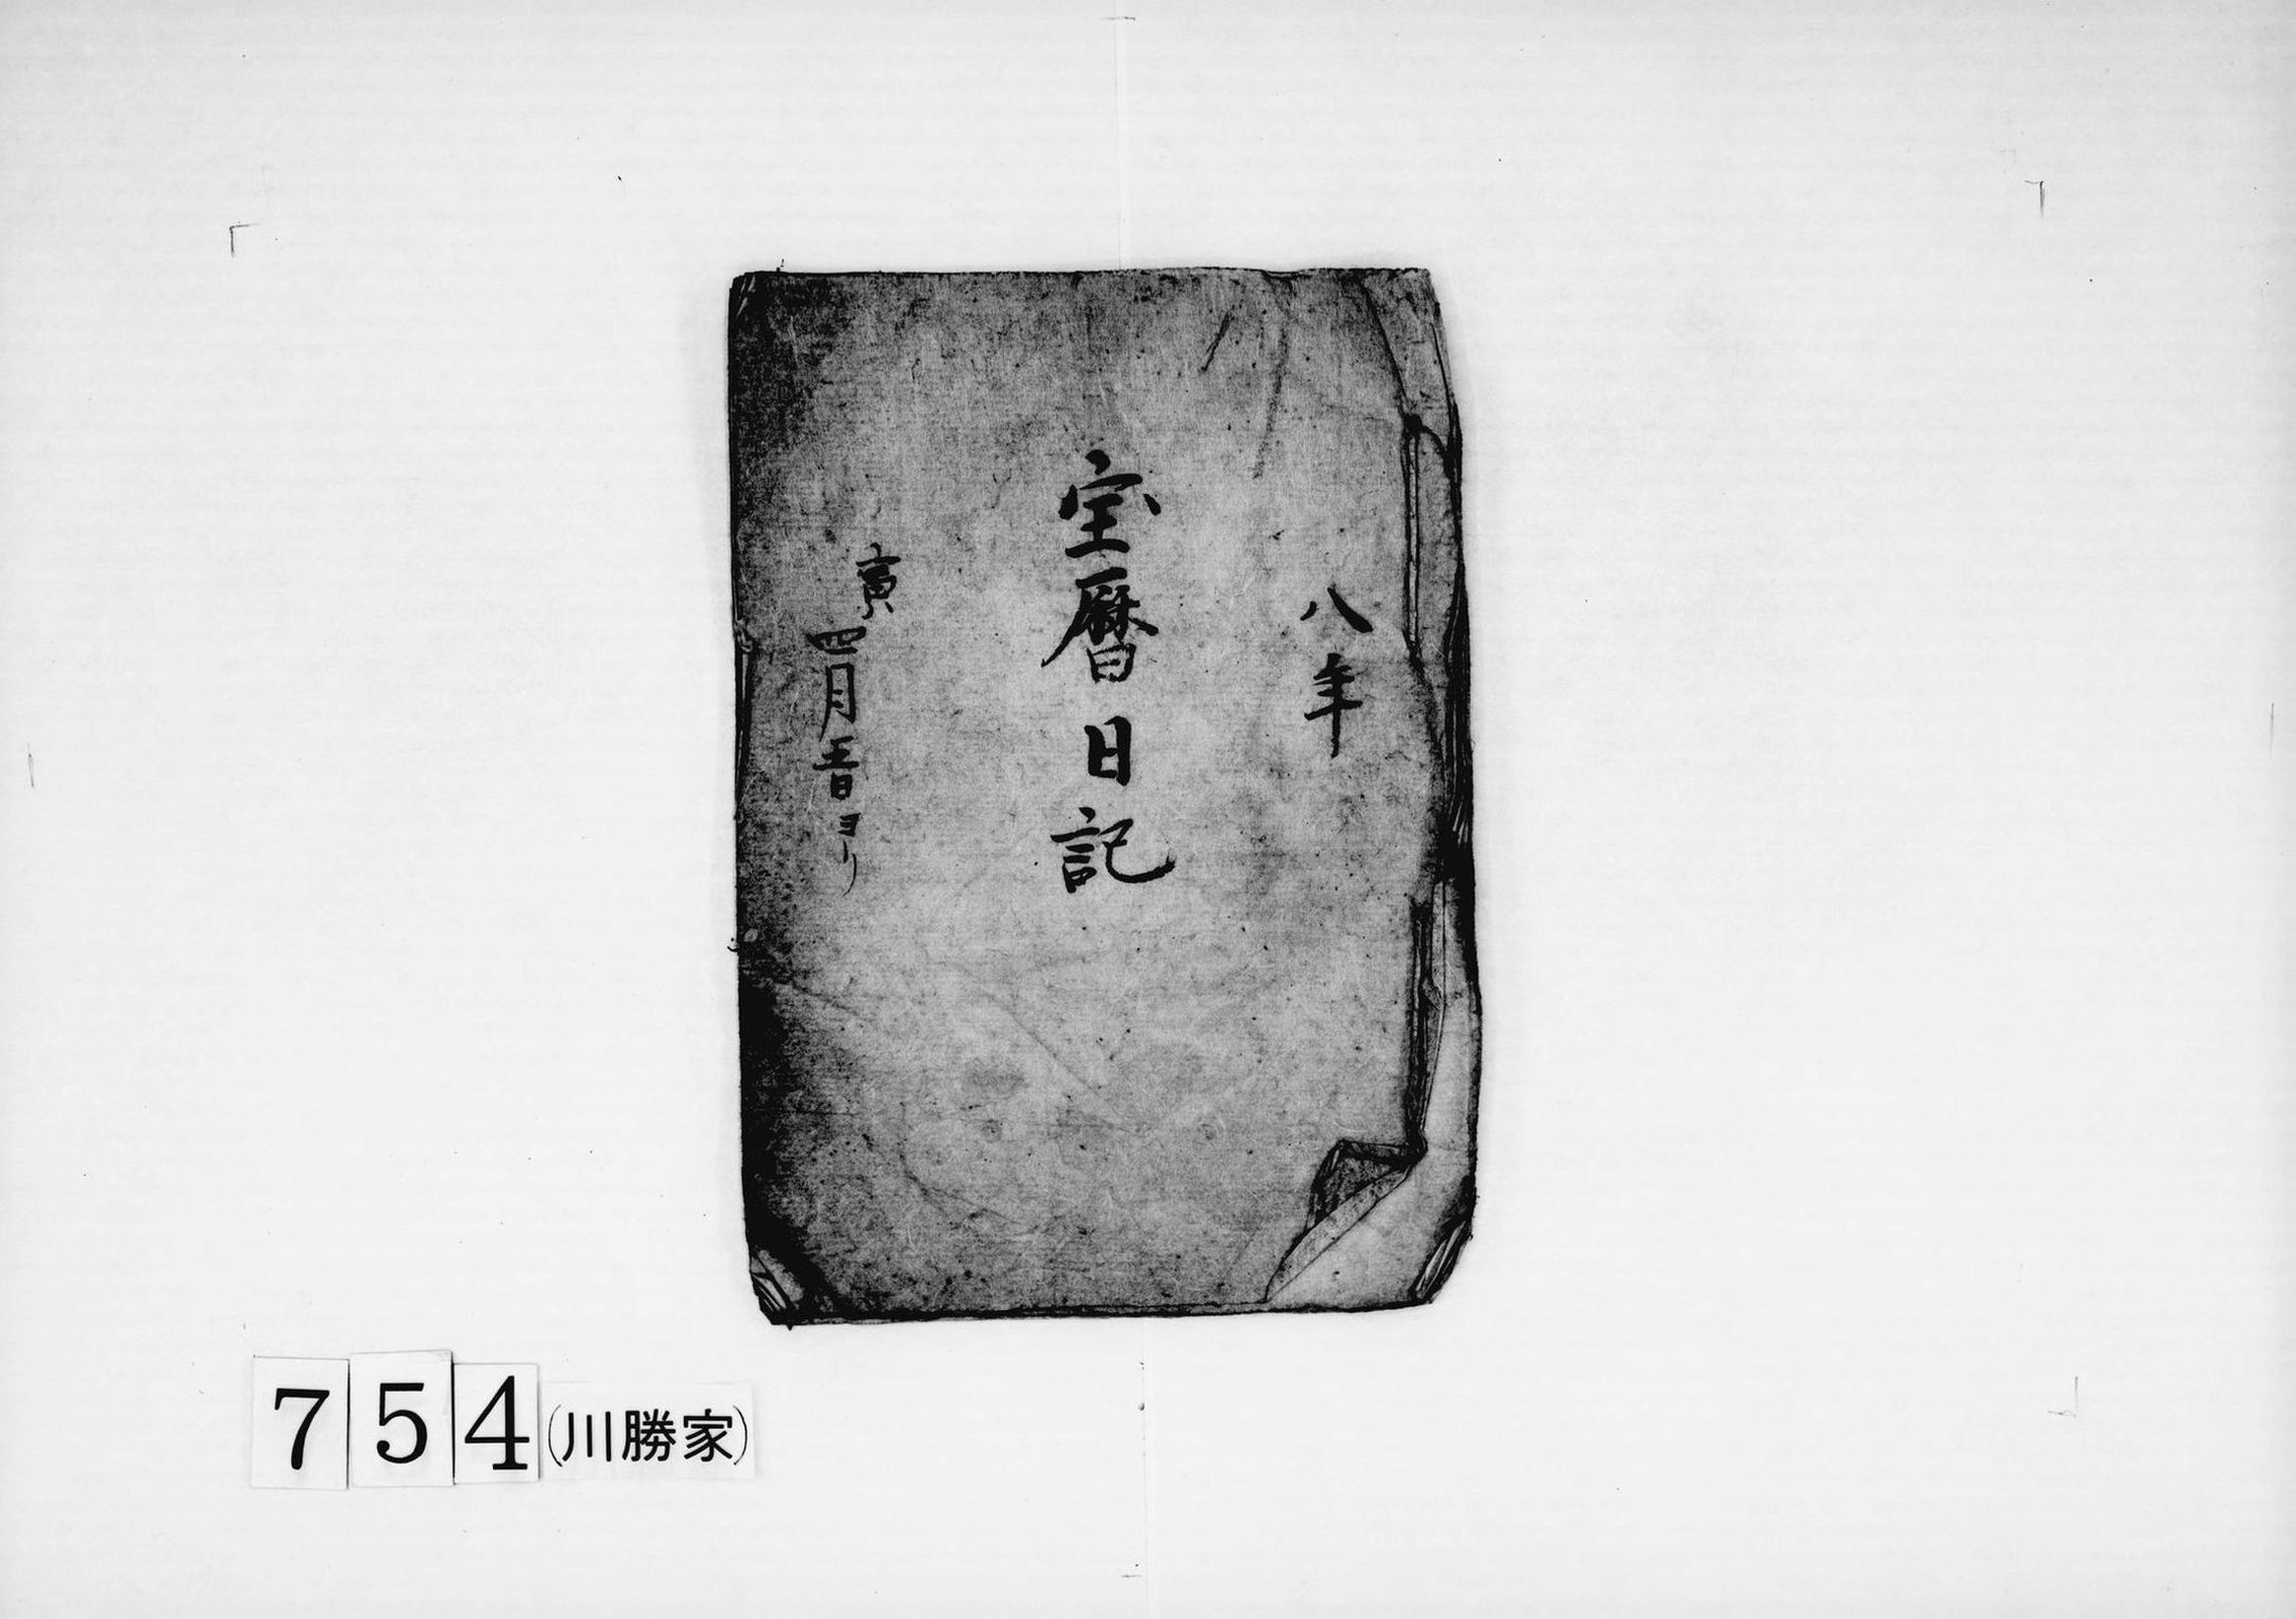 八年
宝暦日記
寅
四月五日ヨリ
754(川勝家)